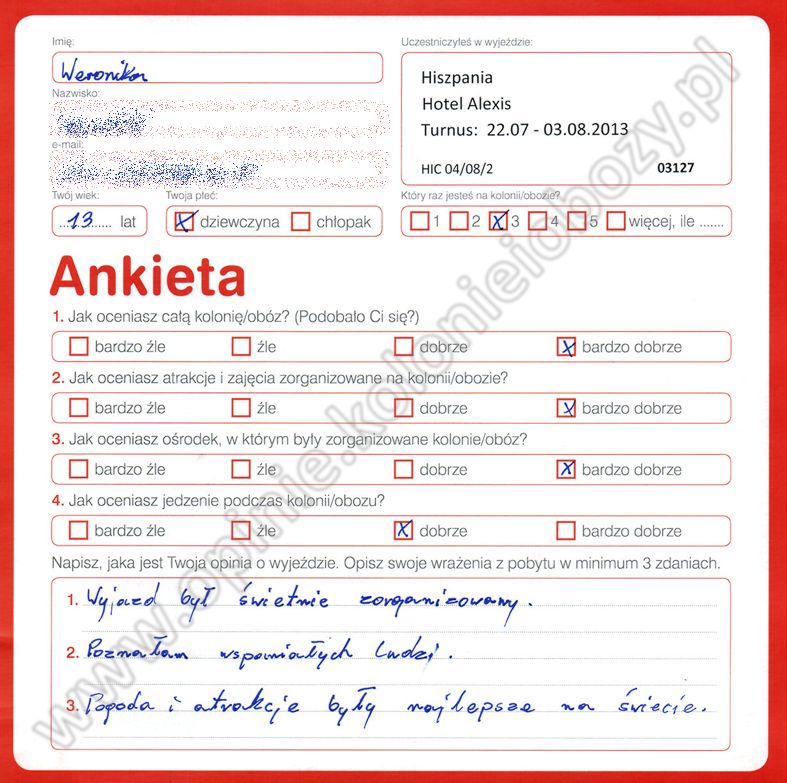 Imię:
Uczestniczyłeś w wyjeździe:
Weronika
Hiszpania
Hotel Alexis
Turnus: 22.07 - 03.08.2013
HIC 04/08/2 03127
Nazwisko:
e-mail:
Twój wiek: Twoja płeć: Który raz jesteś na kolonii/obozie?
....13...... lat dziewczyna chłopak 1 2 3 4 5 więcej, ile .......
Ankieta
1. Jak oceniasz całą kolonię/obóz? (Podobało Ci się?)
bardzo źle źle dobrze bardzo dobrze
2. Jak oceniasz atrakcje i zajęcia zorganizowane na kolonii/obozie?
bardzo źle źle dobrze bardzo dobrze
3. Jak oceniasz ośrodek, w którym były zorganizowane kolonie/obóz?
bardzo źle źle dobrze bardzo dobrze
4. Jak oceniasz jedzenie podczas kolonii/obozu?
bardzo źle źle dobrze bardzo dobrze
Napisz, jaka jest Twoja opinia o wyjeździe. Opisz swoje wrażenia z pobytu w minimum 3 zdaniach.
1. Wyjazd był świetnie zorganizowany.
2. Poznałam wspaniałych ludzi.
3. Pogoda i atrakcje były najlepsze na świecie.
www.opinie.kolonieiobozy.pl